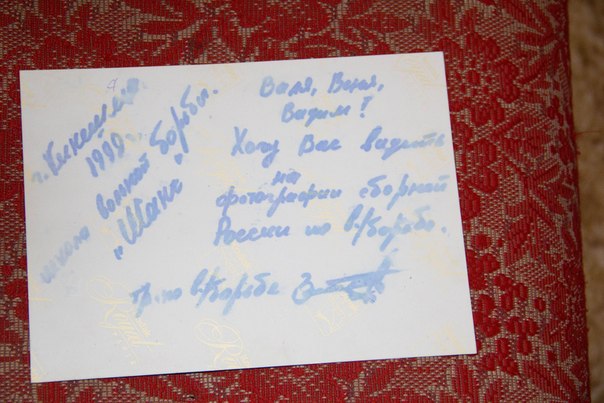 г. Кинешма
1999 г.
школа вольной борьбы.
"Шанс"
Валя, Веня,
Вадим!
Хочу Вас видеть
на
фотографии сборной
России по в/борьбе.
тр. по в/борьбе